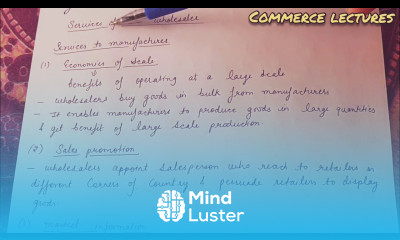 COMMERCE LECTURES
Services of wholesaler
Services to manufactures
(1) Economies of Scale
benefits of operating at a large scale
- wholesalers buy goods in bulk from manufacturers
- It enables manufacturers to produce goods in large quantities
& get benefit of large scale production.
(2) Sales promotion
- wholesalers appoint salesperson who reach to retailers in
different Corners of Country & persuade retailers to display
goods
Mind
Luster